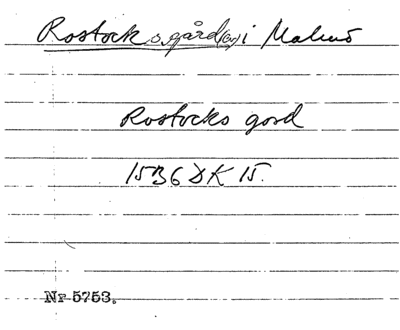 Rostocks gård(en) i Malmö
Rostocks gord
1536 DK 15.
Nr 5753.